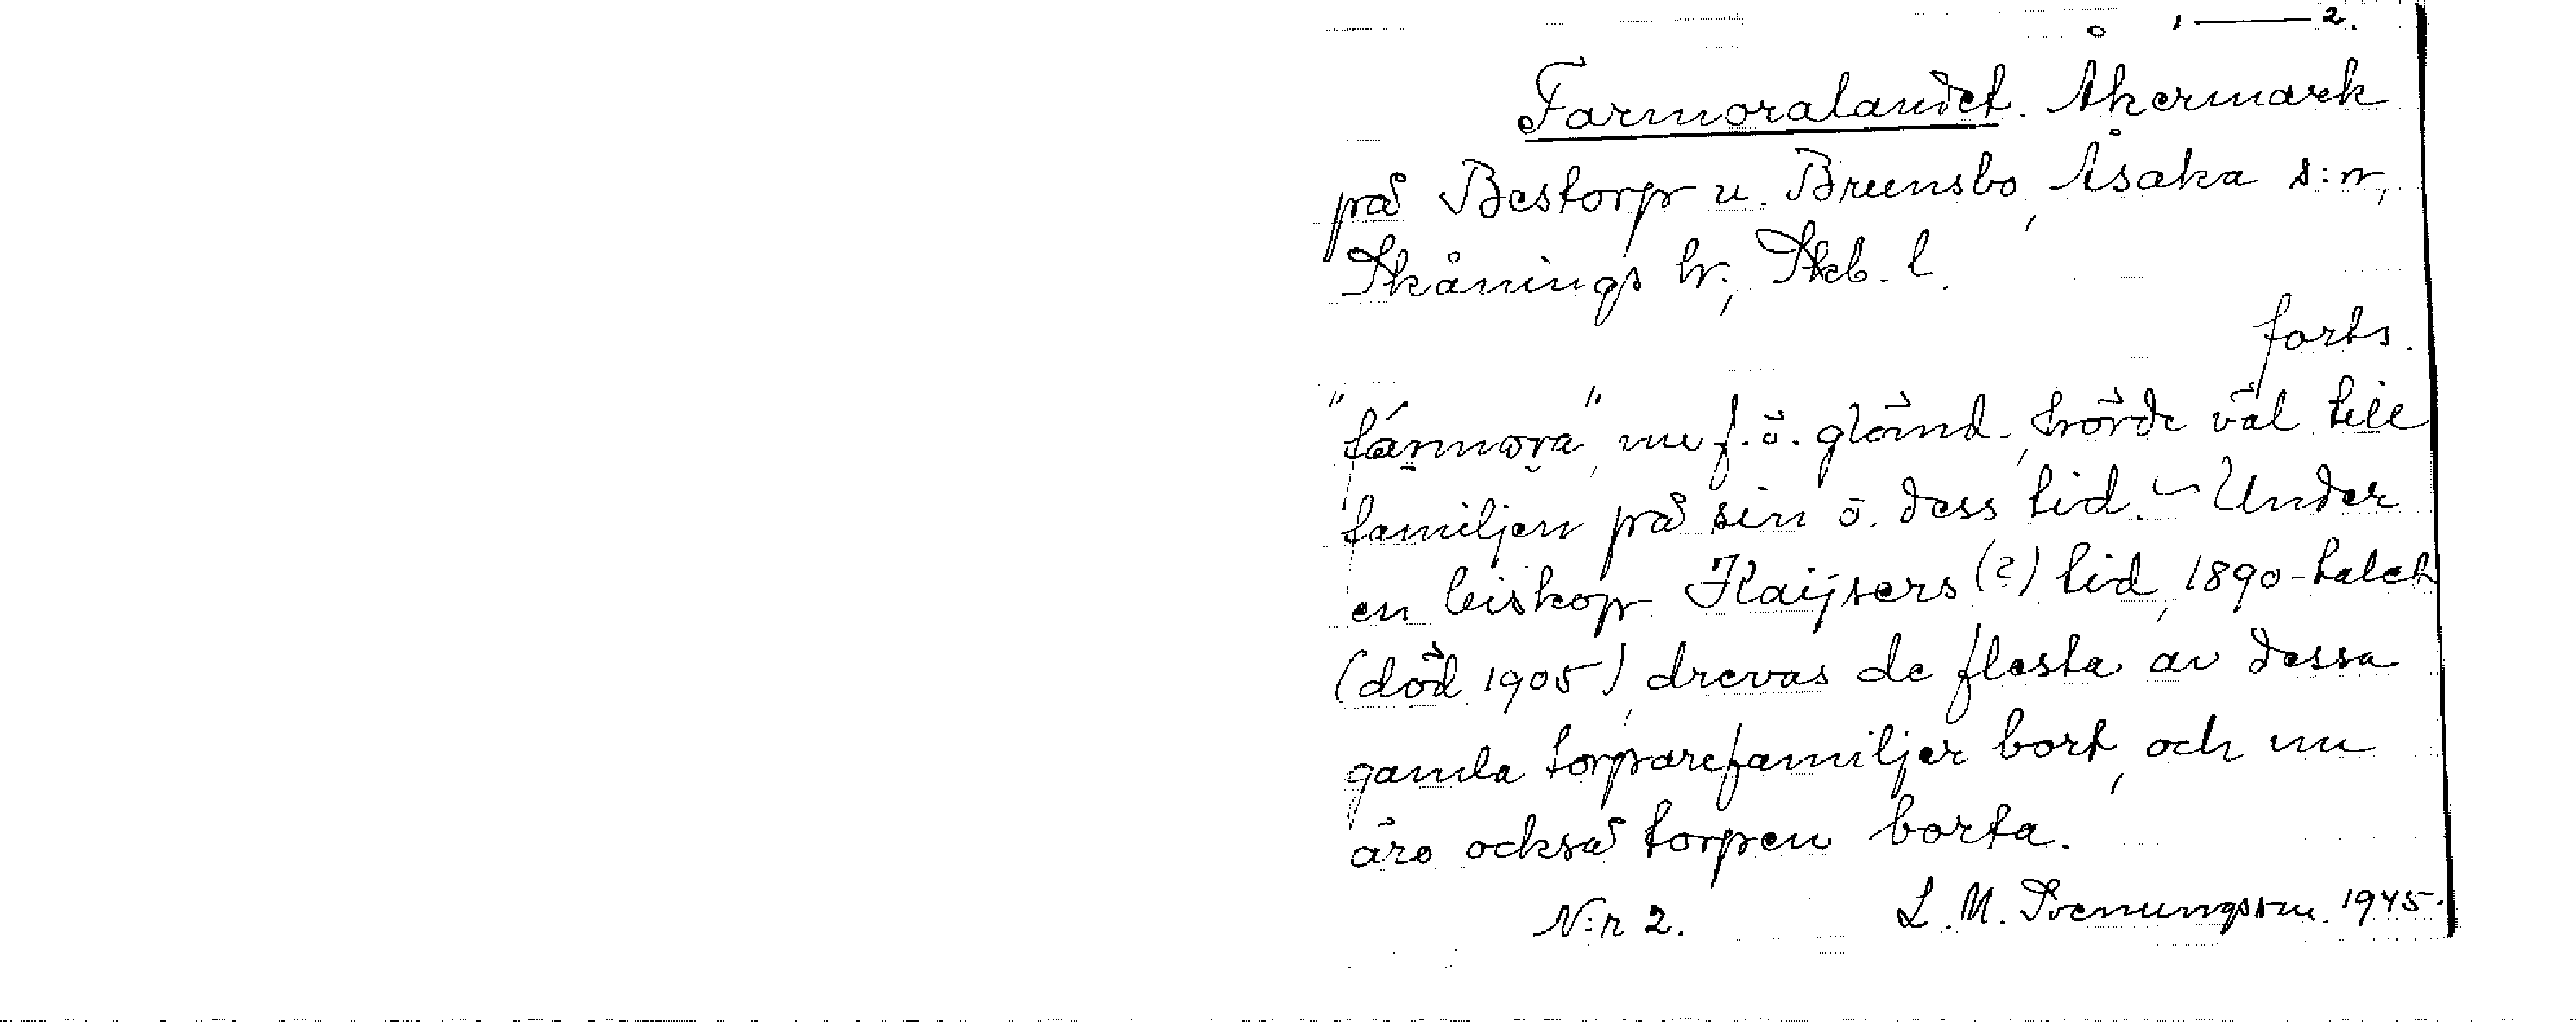 1 — 2.
Farmoralandet. Åkermark
på Bestorp u. Brunsbo, Åsaka s:n,
Skånings hr., Skb. l.
forts.
"fármora", nu f. ö. glömd, hörde väl till
familjen på sin ö. dess tid. – Under
en biskop Kaijsers (?) tid, 1890-talet
(död 1905), drevas de flesta av dessa
gamla torparefamiljer bort, och nu
äro också torpen borta.
N:r 2. L. M. Svenungsson. 1945.